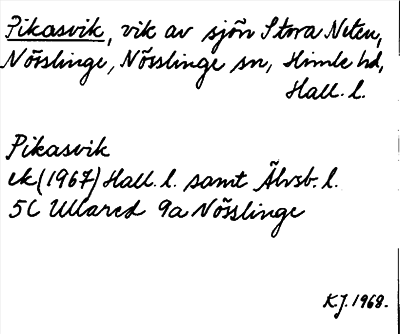 Pikasvik, vik av sjön Stora Neten,
Nösslinge, Nösslinge sn, Himle hd,
Hall. l.
Pikasvik
ek (1967) Hall. l. samt Älvsb. l.
5C Ullared 9a Nösslinge
K.J. 1968.